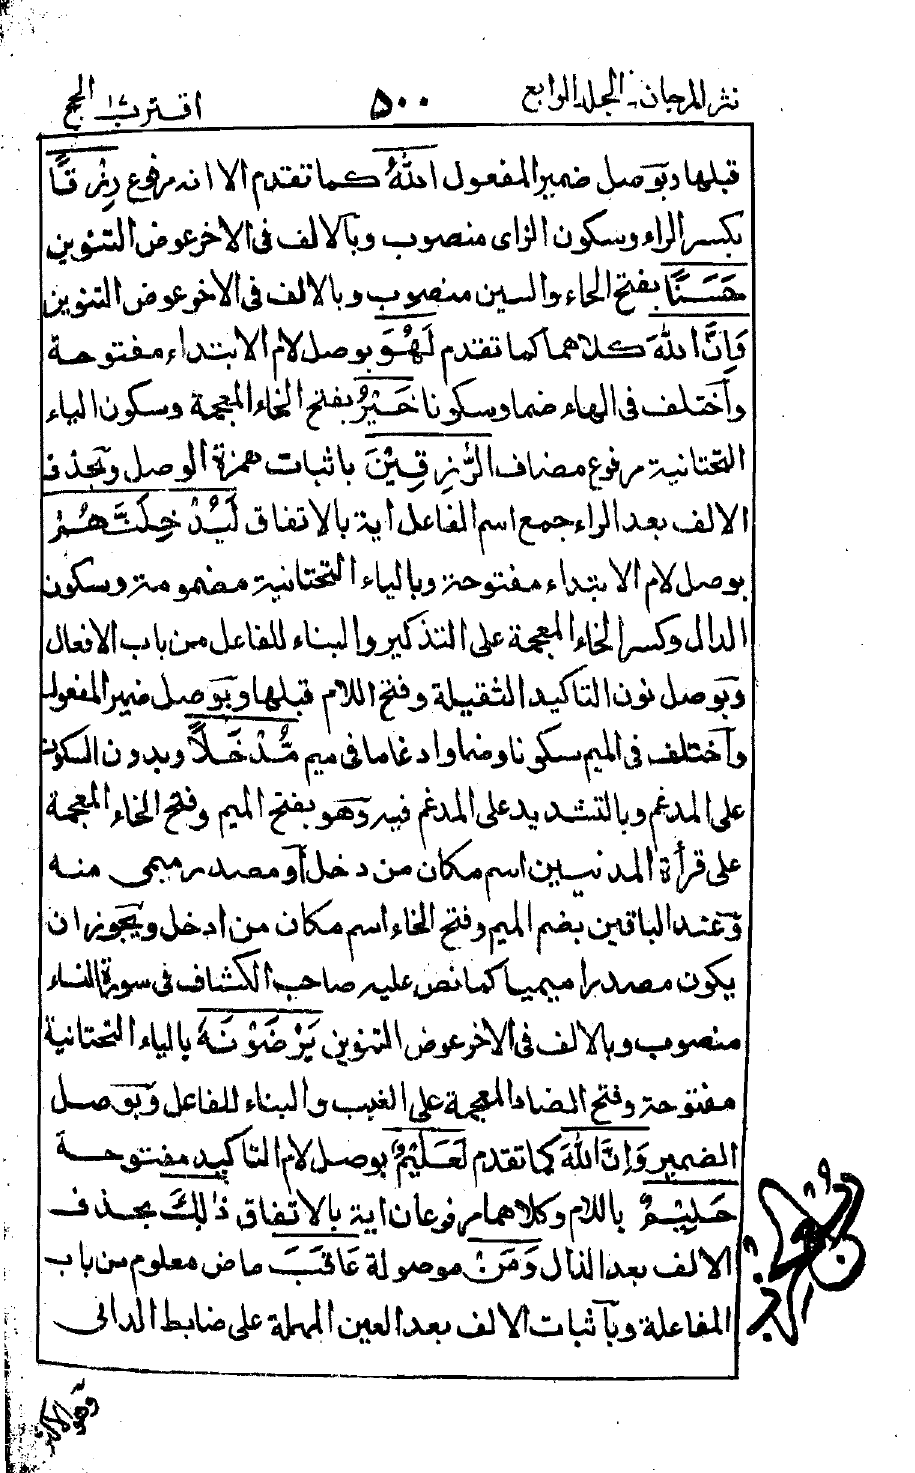 نثر المرجان۔ الجلد الرابع ۵۰۰ اقترب ۱۷ الحج
قبلها وبوصل ضمير المفعول اللهُ كما تقدم الا انه مرفوع رِزْقًا
بكسر الراء وسكون الزاى منصوب وبالالف فى الاخر عوض التنوين
حَسَنًا بفتح الحاء والسين منصوب وبالالف فى الاخر عوض التنوين
وَاِنَّ اللهَ كلاهما كما تقدم لَهُوَ بوصل لام الابتداء مفتوحة
واختلف فى الهاء ضما وسكونا خَيْرُ بفتح الخاء المعجمة وسكون الياء
التحتانية مرفوع مضاف الرّٰزِقِيْنَ باثبات همزة الوصل وبحذف
الالف بعد الراء جمع اسم الفاعل اية بالاتفاق لَيُدْخِلَنَّهُمْ
بوصل لام الابتداء مفتوحة وبالياء التحتانية مضمومة وسكون
الدال وكسر الخاء المعجمة على التذكير والبناء للفاعل من باب الافعال
وبوصل نون التاكيد الثقيلة وفتح اللام قبلها وبوصل ضمير المفعول
واختلف فى الميم سكونا وضما وادغاما فى ميم مُّدْخَلًا وبدون السكون
على المدغم وبالتشديد على المدغم فيه وهو بفتح الميم وفتح الخاء المعجمة
على قرأة المدنيين اسم مكان من دخل أو مصدر ميمى منه
وعند الباقين بضم الميم وفتح الخاء اسم مكان من ادخل ويجوز ان
يكون مصدرا ميميا كما نص عليه صاحب الكشاف فى سورة النساء
منصوب وبالالف فى الاخر عوض التنوين يَرْضَوْنَهٗ بالياء التحتانية
مفتوحة وفتح الضاد المعجمة على الغيب والبناء للفاعل وبوصل
الضمير وَاِنَّ اللهَ كما تقدم لَعَلِيْمٌ بوصل لام التاكيد مفتوحة
حَلِيْمٌ باللام وكلاهما مرفوعان اية بالاتفاق ذٰلِكَ بحذف
الالف بعد الذال وَمَنْ موصولة عَاقَبَ ماض معلوم من باب
المفاعلة وباثبات الالف بعد العين المهملة على ضابط الدانى